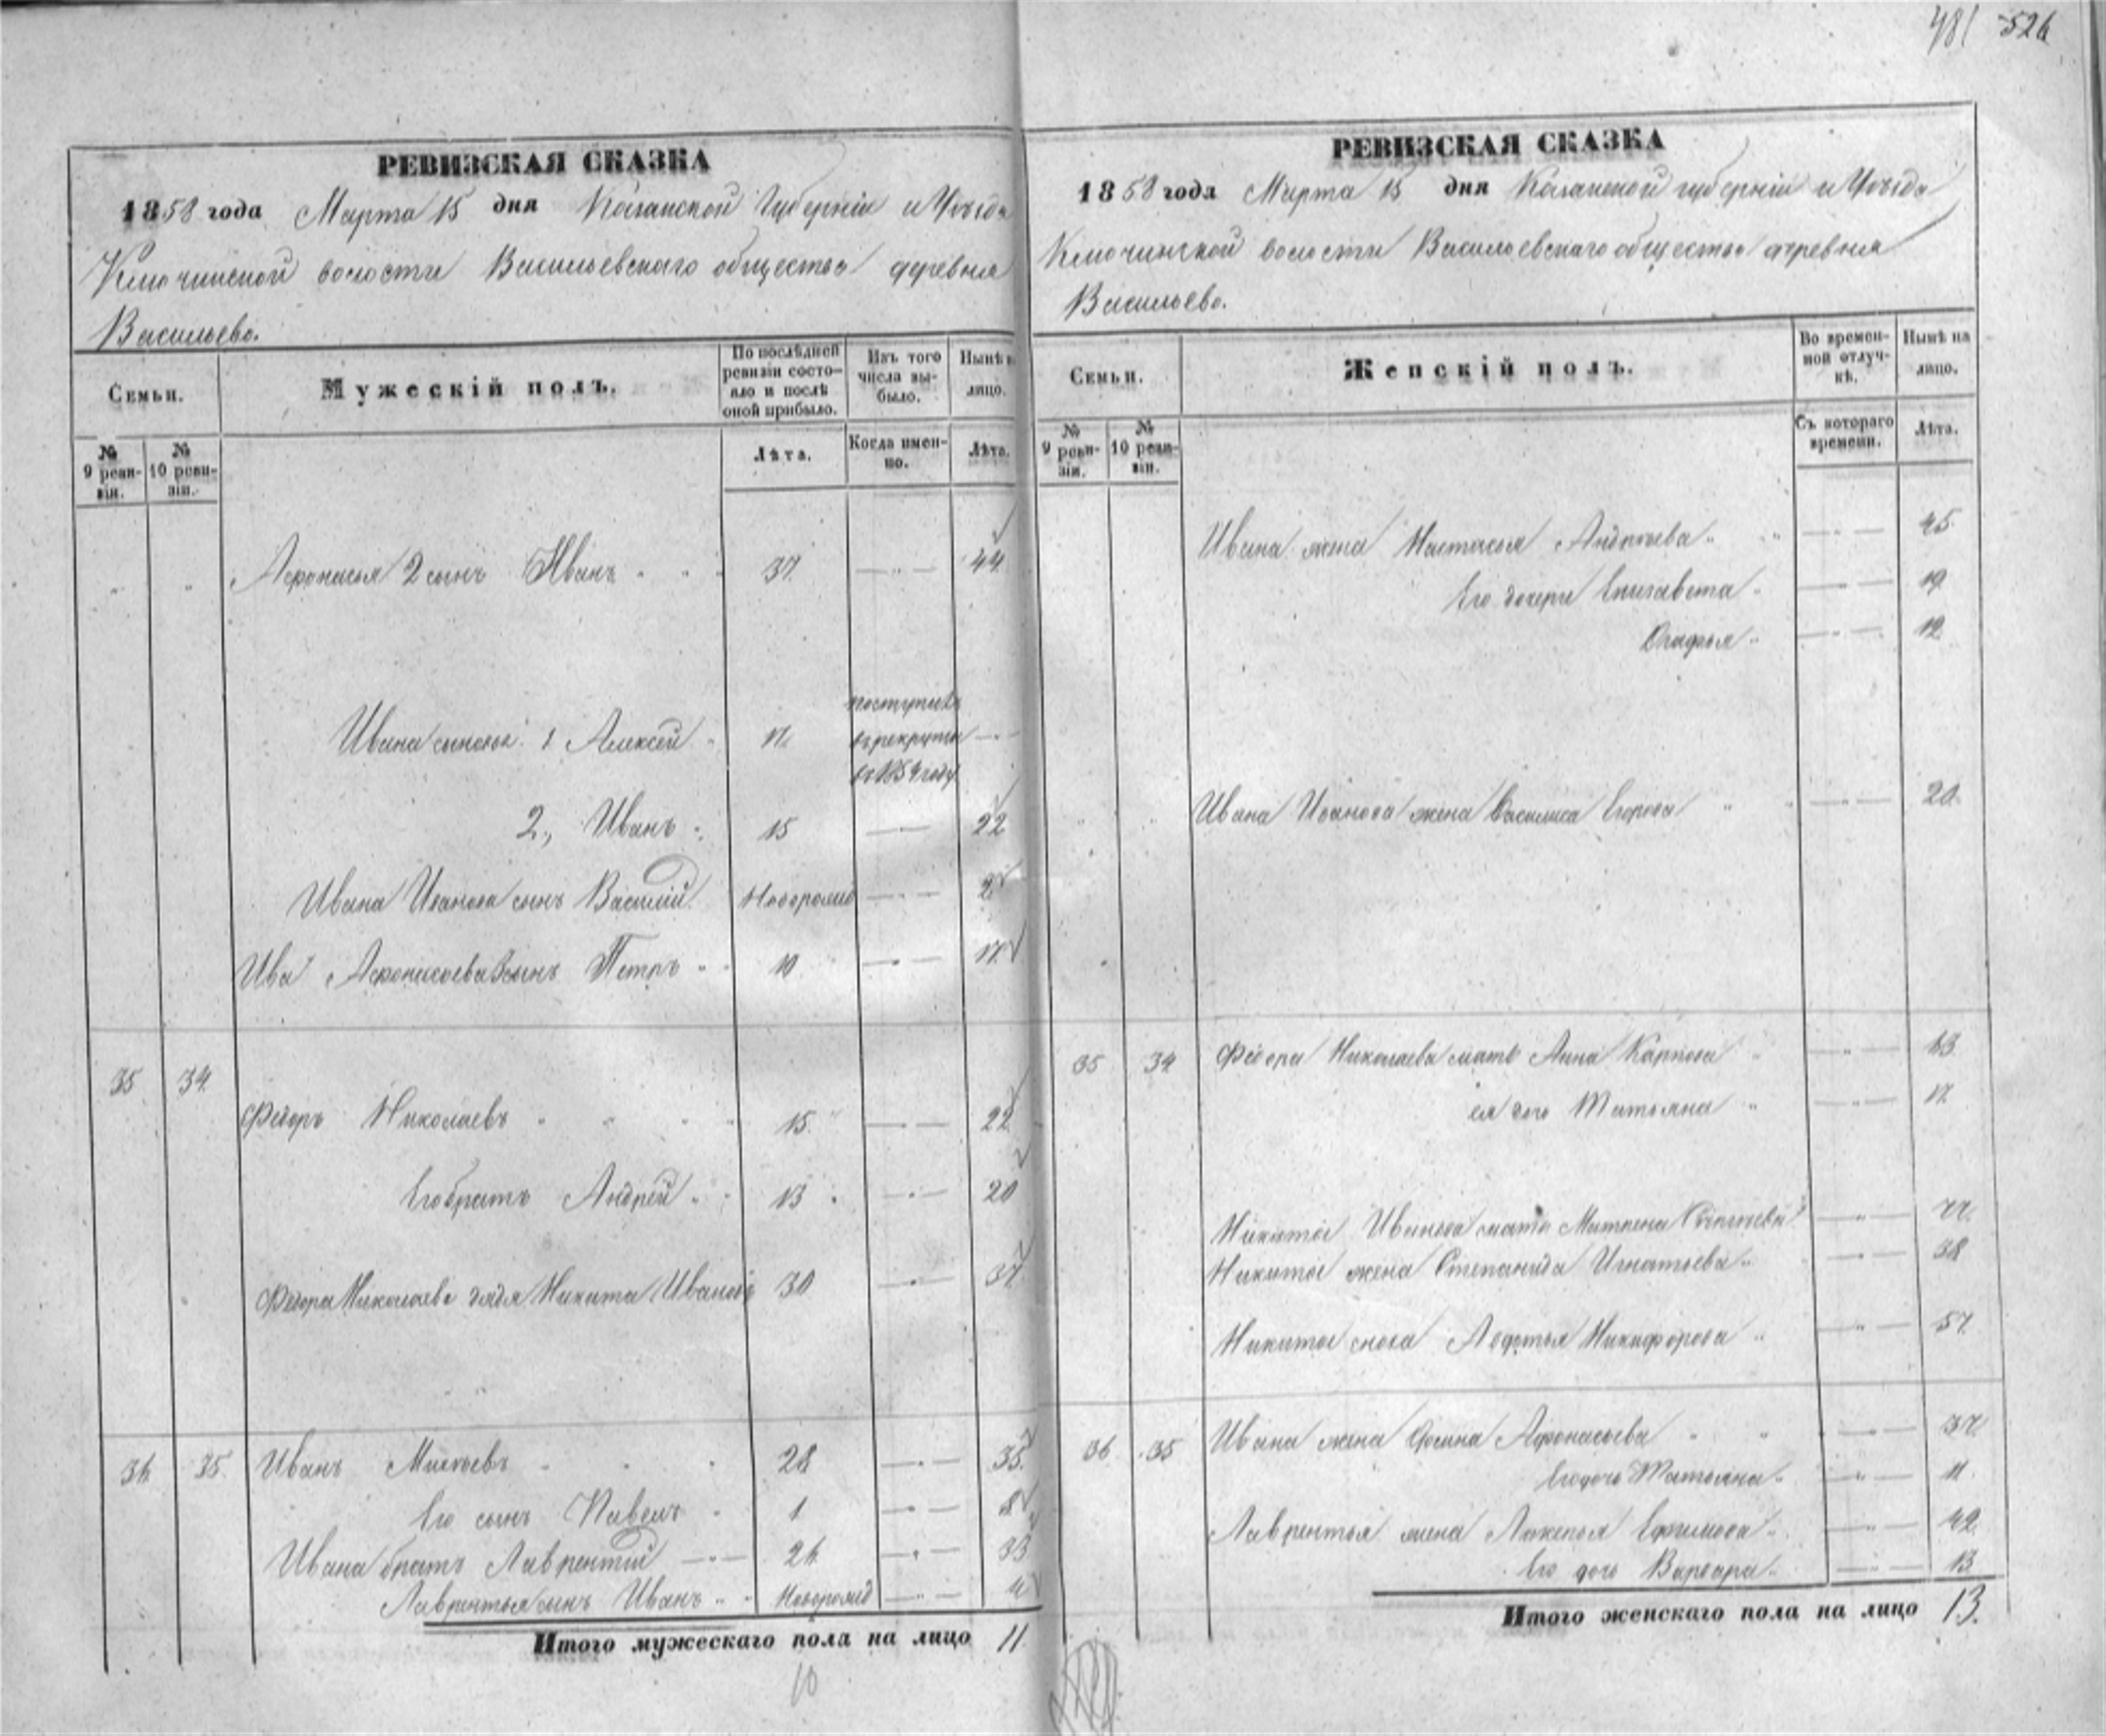 481 526
РЕВИЗСКАЯ СКАЗКА
1858 года Марта 15 дня Казанской Губернiи и Уѣзда
Ключинской волости Васильевскаго общества деревня
Васильево.
Семьи.
Мужескiй полъ.
По послѣдней ревизiи состояло и послѣ оной прибыло.
Изъ того числа выбыло.
Нынѣ на лицо.
№ 9 ревизiи.
№ 10 ревизiи.
Лѣта.
Когда именно.
Лѣта.
Афонасья 2 сынъ Иванъ 37. 44.
Ивана сыновья 1 Алексей 17. поступилъ в рекруты въ 1854 году
2., Иванъ 15 22
Ивана Иванова сынъ Василiй Новорожд 2
Ива Афонасьева 3 сынъ Петръ 10 17.
35 34. Фёдоръ Николаевъ 15. 22
Его братъ Андрей 13 20
Фёдора Николаева дядя Никита Ивановъ 30 37.
36 35. Иванъ 28 35.
Его сынъ Павелъ 1 8
Ивана братъ Лаврентiй 26 33
Лаврентья сынъ Иванъ Новорожд 4
Итого мужескаго пола на лицо 11.
10
РЕВИЗСКАЯ СКАЗКА
1858 года Марта 15 дня Казанской губернiи и Уѣзда
Ключинской волости Васильевскаго общества деревня
Васильево.
Семьи.
Женскiй полъ.
Во временной отлучкѣ.
Нынѣ на лицо.
№ 9 ревизiи.
№ 10 ревизiи.
Съ котораго времени.
Лѣта.
Ивана жена Настасья 45.
Его дочери Елизавета 19.
Агафья 12
Ивана Иванова жена Василиса Егорова 20.
35 34 Фёдора Николаева мать Анна Карпова 63
ея дочь Татьяна 17.
Никиты Иванова мать 77.
Никиты жена Степанида Игнатьева 38
Никиты сноха Авдотья Никифорова 57.
36 35 Ивана жена Афонасьева 37
Его дочь Татьяна 11
Лаврентья жена Лукерья Ефимова 42.
Его дочь Варвара 13
Итого женскаго пола на лицо 13.